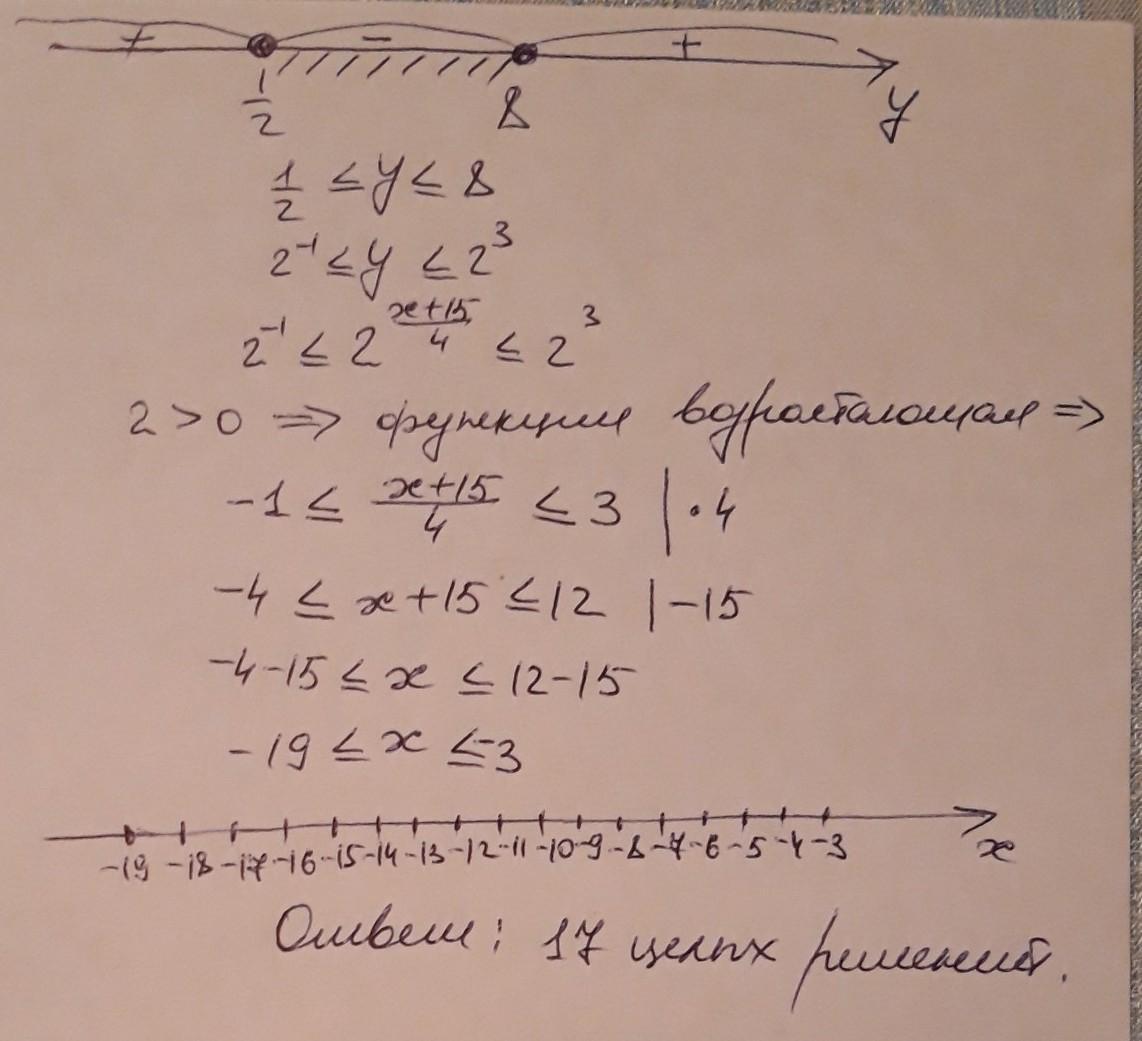 + − +
1/2 8 y
1/2 ≤ y ≤ 8
2⁻¹ ≤ y ≤ 2³
2⁻¹ ≤ 2^((x+15)/4) ≤ 2³
2 > 0 ⇒ функция возростающая ⇒
−1 ≤ (x+15)/4 ≤ 3 | · 4
−4 ≤ x+15 ≤ 12 | −15
−4−15 ≤ x ≤ 12−15
−19 ≤ x ≤ −3
−19 −18 −17 −16 −15 −14 −13 −12 −11 −10 −9 −8 −7 −6 −5 −4 −3 x
Ответ: 17 целых решений.